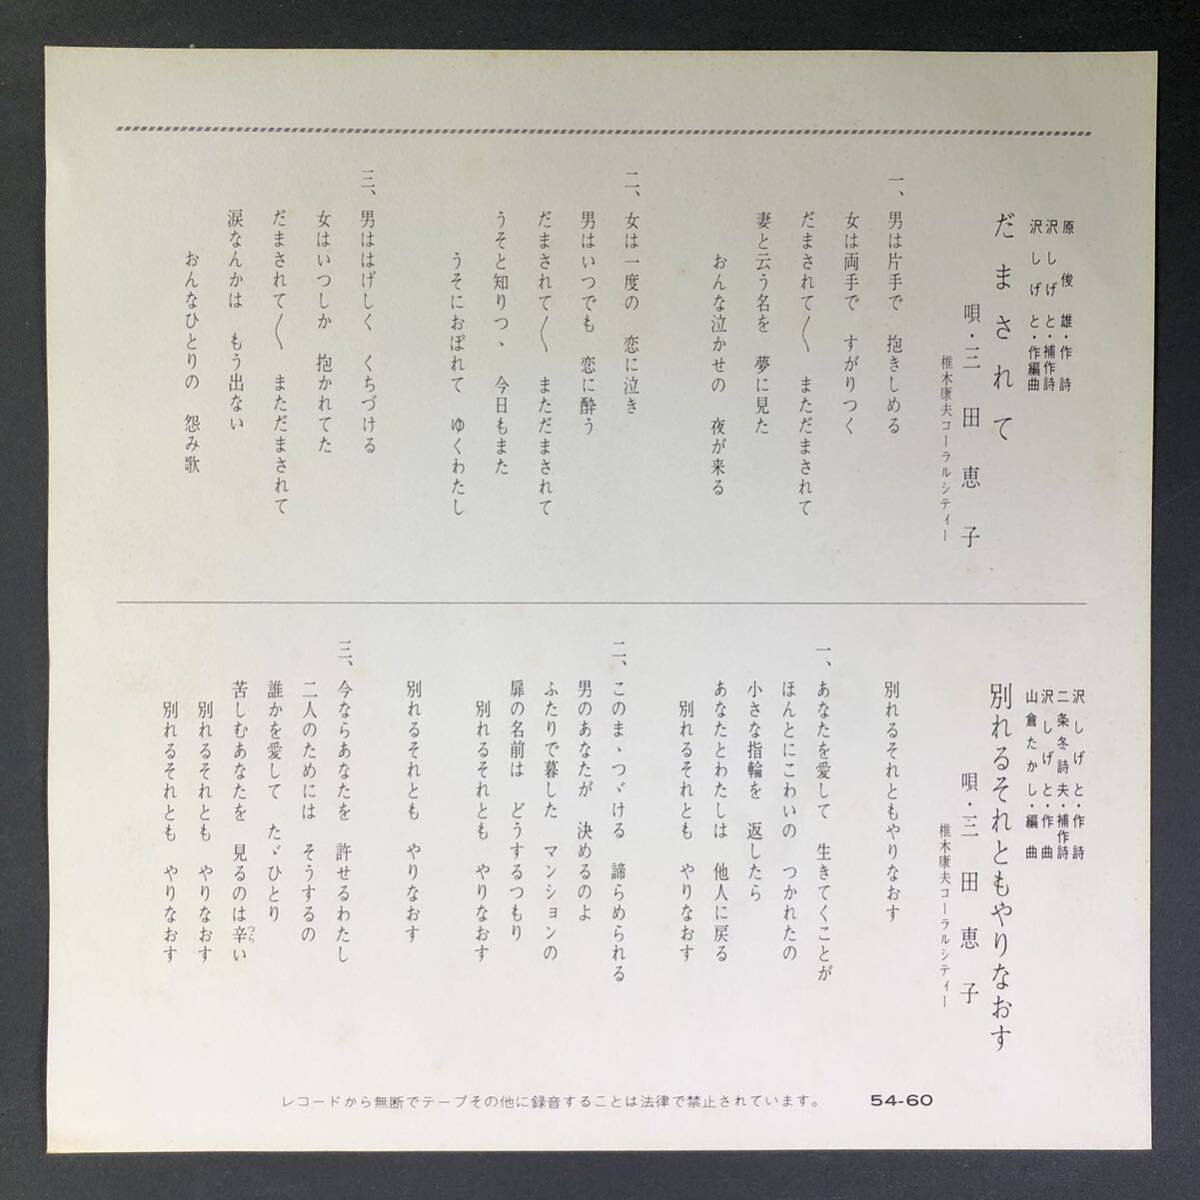 原俊雄・作詩
沢しげと・補作詩
沢しげと・作編曲
だまされて
唄・三田恵子
椎木康夫コーラルシティー
一、男は片手で　抱きしめる
女は両手で　すがりつく
だまされて〳〵　まただまされて
妻と云う名を　夢に見た
おんな泣かせの　夜が来る
二、女は一度の　恋に泣き
男はいつでも　恋に酔う
だまされて〳〵　まただまされて
うそと知りつゝ　今日もまた
うそにおぼれて　ゆくわたし
三、男ははげしく　くちづける
女はいつしか　抱かれてた
だまされて〳〵　まただまされて
涙なんかは　もう出ない
おんなひとりの　怨み歌
沢しげと・作詩
二条冬詩夫・補作詩
沢しげと・作曲
山倉たかし・編曲
別れるそれともやりなおす
唄・三田恵子
椎木康夫コーラルシティー
別れるそれともやりなおす
一、あなたを愛して　生きてくことが
ほんとにこわいの　つかれたの
小さな指輪を　返したら
あなたとわたしは　他人に戻る
別れるそれとも　やりなおす
二、このまゝつゞける　諦らめられる
男のあなたが　決めるのよ
ふたりで暮した　マンションの
扉の名前は　どうするつもり
別れるそれとも　やりなおす
別れるそれとも　やりなおす
三、今ならあなたを　許せるわたし
二人のためには　そうするの
誰かを愛して　たゞひとり
苦しむあなたを　見るのは辛い
つら
別れるそれとも　やりなおす
別れるそれとも　やりなおす
レコードから無断でテープその他に録音することは法律で禁止されています。　54-60